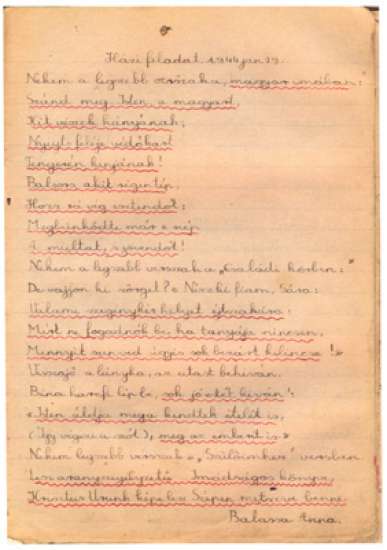 Házi feladat 1944 jan 27.
Nekem a legszebb versszaka, magyar imában:
Szánd meg Isten a magyart,
Kit vészek hányának,
Nyujts feléje védőkart
Tengerén kínjának!
Balsors akit régen tép,
Hozz rá víg esztendőt:
Megbünhődte már e nép
A multat, s jövendőt!
Nekem a legszebb versszak a „Családi körben:"
De vajjon ki zörget? « Nézzki fiam, Sára:
Valami szegény kér helyet éjszakára:
Mért ne fogadnók be, ha tanyája nincsen,
Mennyit szenved úgyis sok bezárt kilincsen!»
Visszajő a lányka, az utast behíván.
Béna harcfi lép be, sok jó estét kíván:
«Isten áldja meg a kendtek ételét is,
(Így végzi a szót), meg az embert is»
Nekem legszebb versszak a „Szülőimhez" versben
Lesz aranyszegélyzetű Imádságos könyv,
Krisztus Urunk képe lesz Szépen metszve benne.
Balassa Anna.